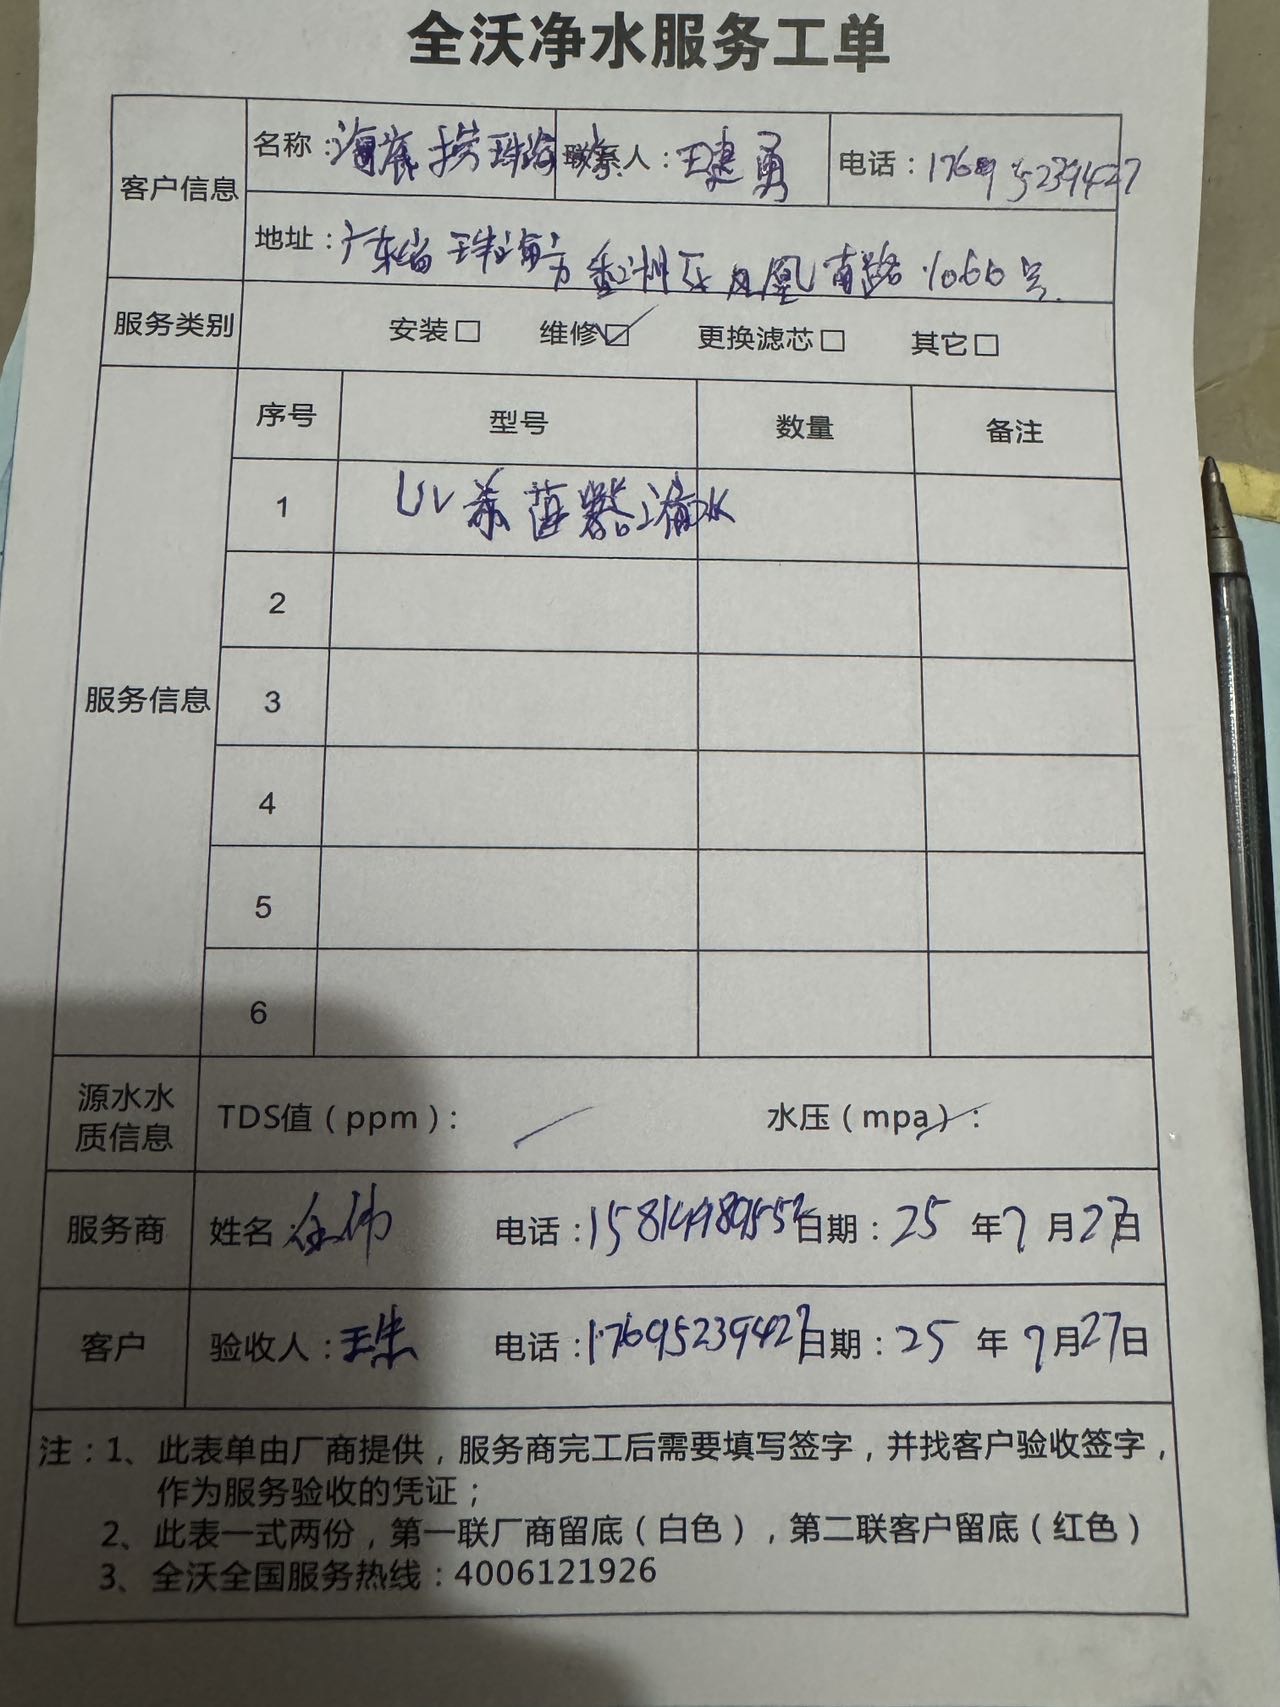 全沃净水服务工单
客户信息
名称：海底捞珠海 联系人：王建勇 电话：17695239427
地址：广东省珠海市香洲区凤凰南路1066号
服务类别 安装□ 维修☑ 更换滤芯□ 其它□
服务信息
序号 型号 数量 备注
1 UV杀菌器漏水
2
3
4
5
6
源水水质信息 TDS值（ppm）： 水压（mpa）：
服务商 姓名： 电话： 日期：25年7月27日
客户 验收人： 电话：17695239427 日期：25年7月27日
注：1、此表单由厂商提供，服务商完工后需要填写签字，并找客户验收签字，
作为服务验收的凭证；
2、此表一式两份，第一联厂商留底（白色），第二联客户留底（红色）
3、全沃全国服务热线：4006121926